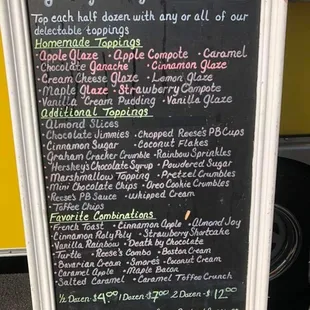 Top each half dozen with any or all of our
delectable toppings
Homemade Toppings
·Apple Glaze ·Apple Compote ·Caramel
·Chocolate Ganache ·Cinnamon Glaze
·Cream Cheese Glaze ·Lemon Glaze
·Maple Glaze ·Strawberry Compote
·Vanilla Cream Pudding ·Vanilla Glaze
Additional Toppings
·Almond Slices
·Chocolate Jimmies ·Chopped Reese's PB Cups
·Cinnamon Sugar ·Coconut Flakes
·Graham Cracker Crumble ·Rainbow Sprinkles
·Hershey's Chocolate Syrup ·Powdered Sugar
·Marshmallow Topping ·Pretzel Crumbles
·Mini Chocolate Chips ·Oreo Cookie Crumbles
·Reese's PB Sauce ·Whipped Cream
·Toffee Chips
Favorite Combinations
·French Toast ·Cinnamon Apple ·Almond Joy
·Cinnamon Roly Poly ·Strawberry Shortcake
·Vanilla Rainbow ·Death by Chocolate
·Turtle ·Reese's Combo ·Boston Cream
·Bavarian Cream ·Smores ·Coconut Cream
·Caramel Apple ·Maple Bacon
·Salted Caramel ·Caramel Toffee Crunch
½ Dozen $4.00 1 Dozen $7.00 2 Dozen $12.00